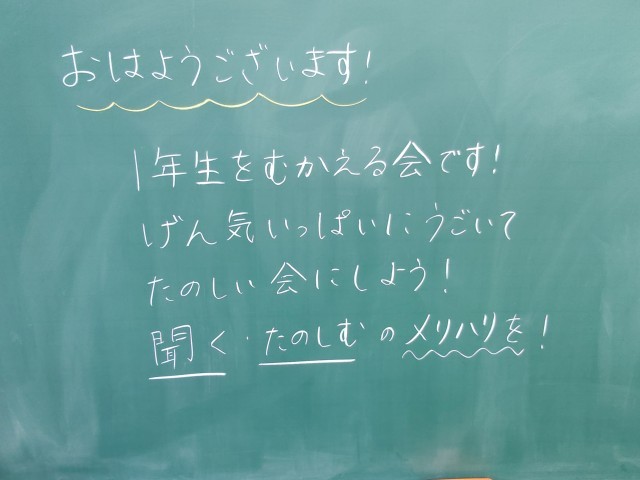 おはようございます!
1年生をむかえる会です!
げん気いっぱいにうごいて
たのしい会にしよう!
聞く・たのしむのメリハリを!